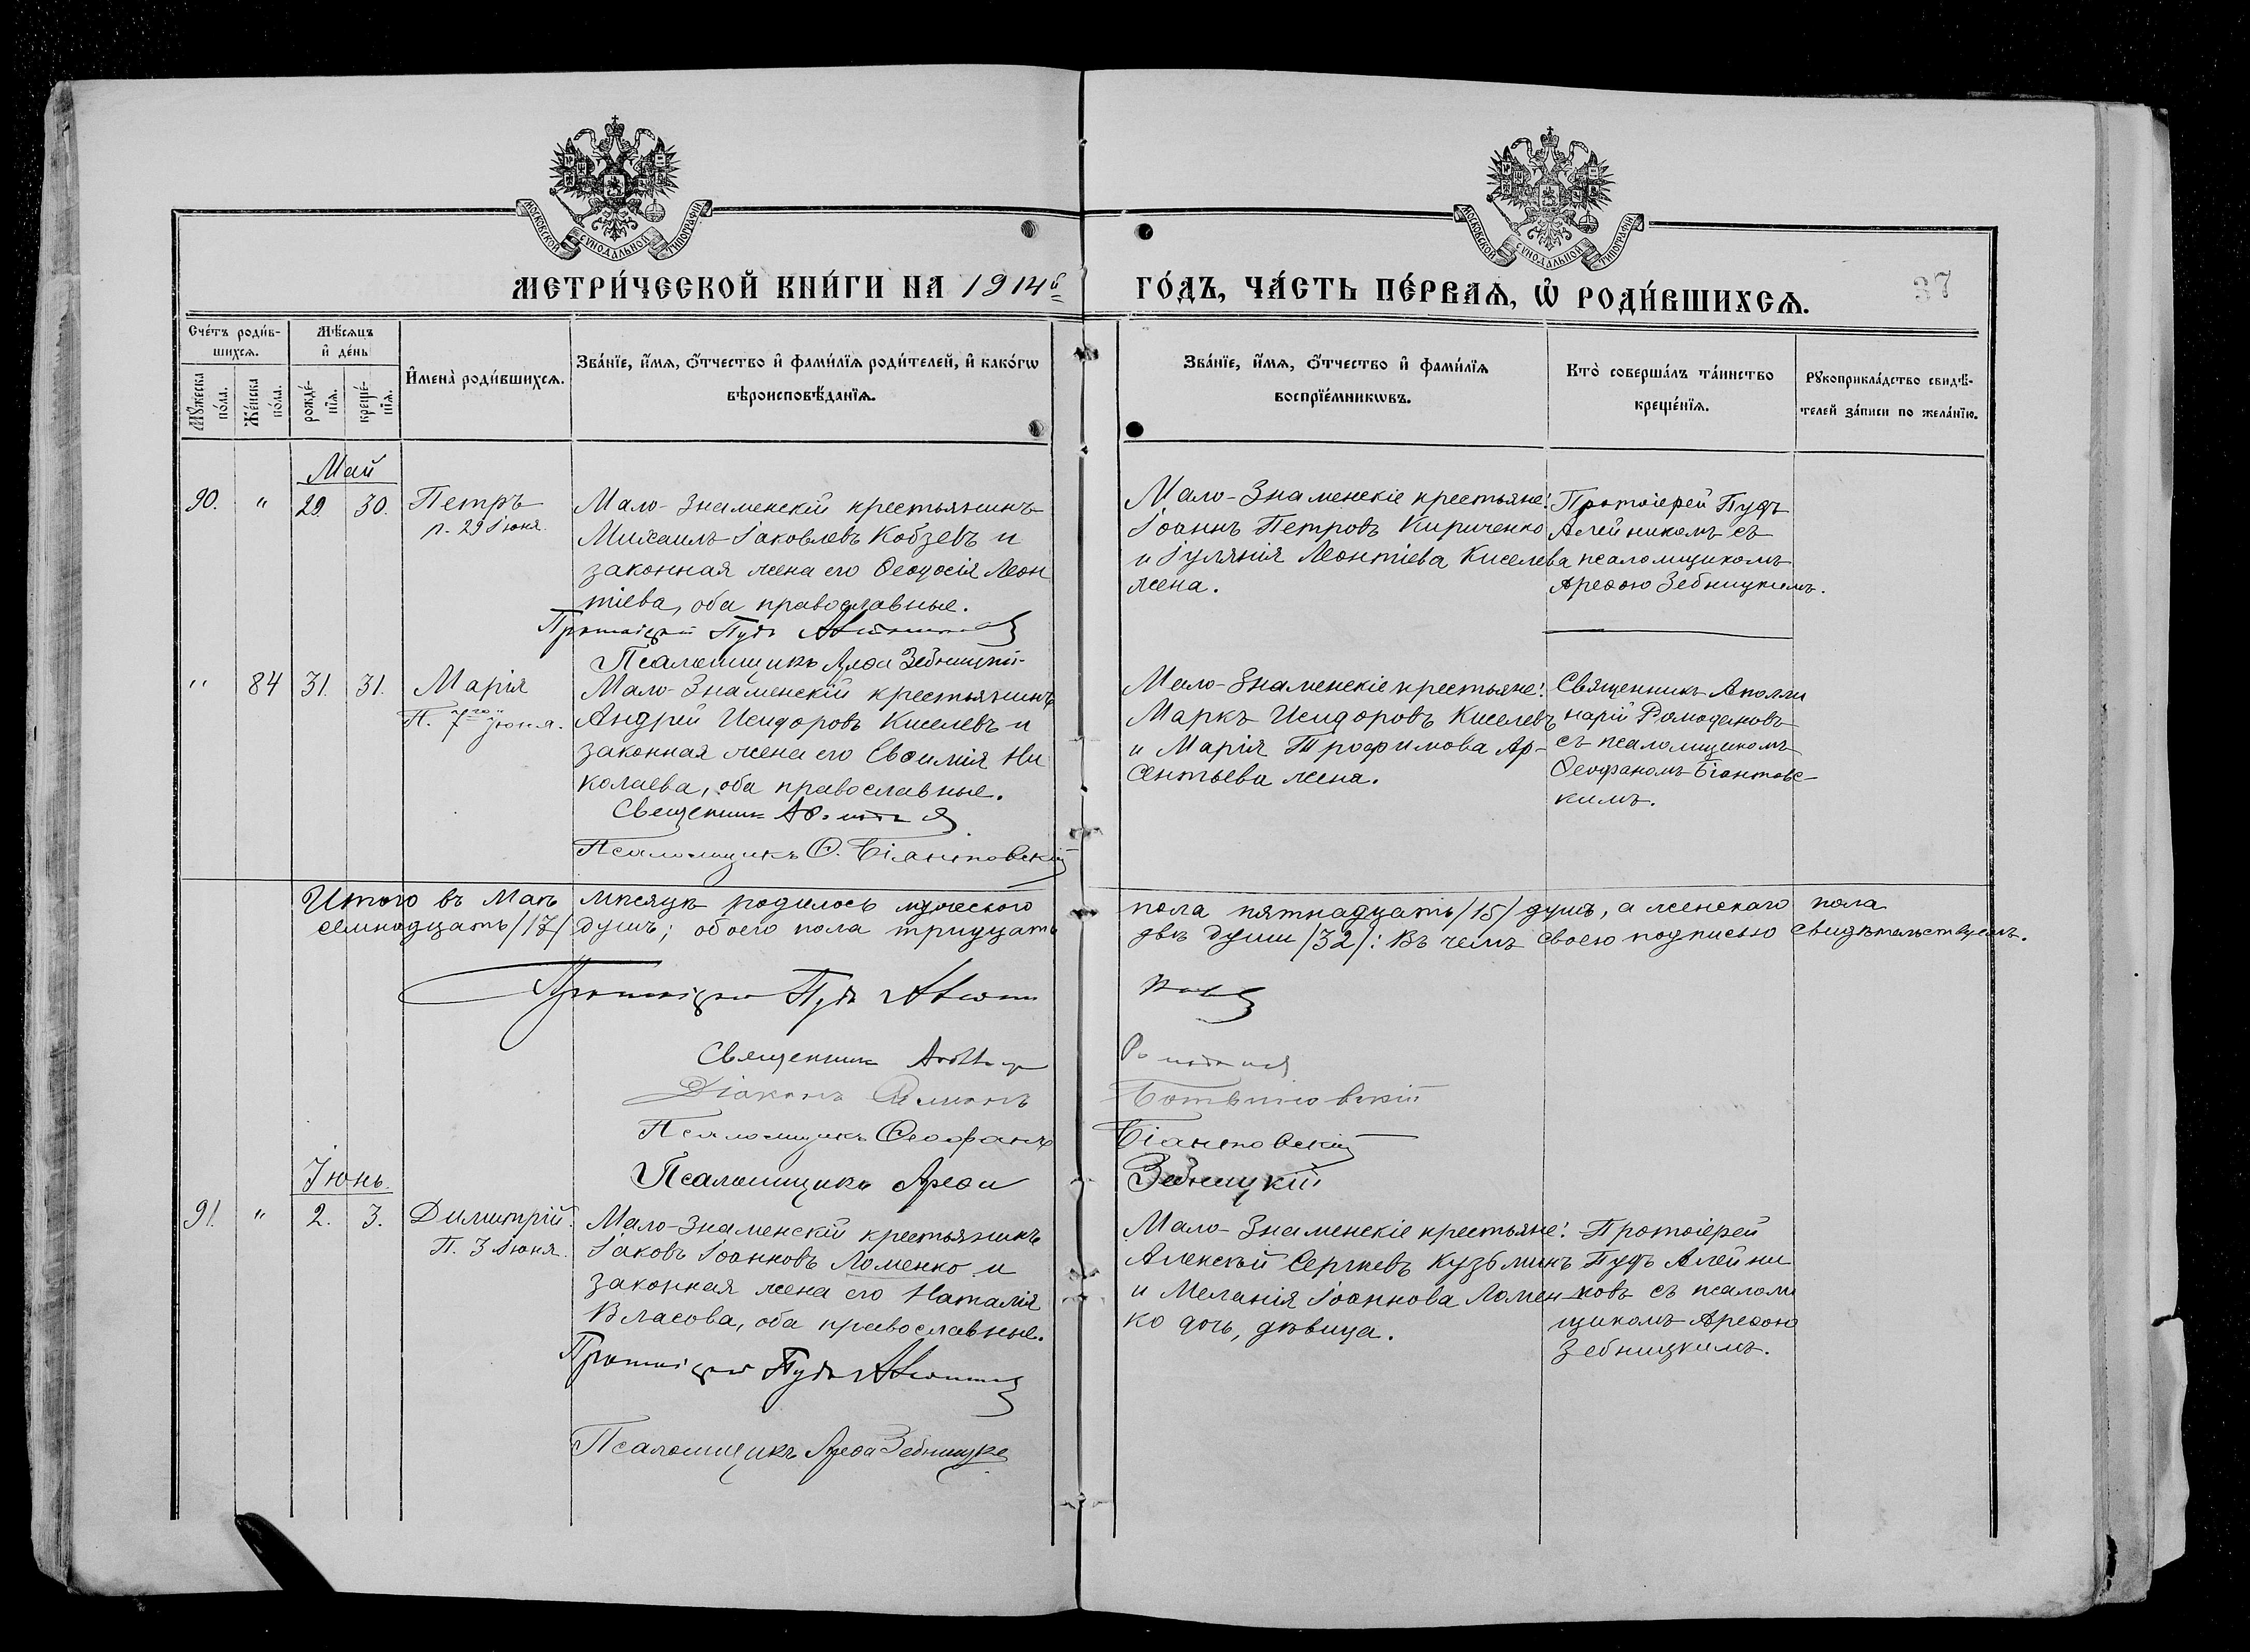 МОСКОВСКОЙ СѴНОДАЛЬНОЙ ТИПОГРАФІИ
МОСКОВСКОЙ СѴНОДАЛЬНОЙ ТИПОГРАФІИ
МЕТРИ́ЧЕСКОЙ КНИ́ГИ НА 1914й ГО́ДЪ, ЧА́СТЬ ПЕ́РВАѦ, Ѽ РОДИ́ВШИХСѦ.
37
Сче́тъ роди́в-
шихсѧ.
Мꙋ́жеска по́ла.
Же́нска по́ла.
Мѣ́сѧцъ
и҆ де́нь
рожде́-
нїѧ.
креще́-
нїѧ.
И҆мена̀ роди́вшихсѧ.
Зва́нїе, и҆́мѧ, ѻ҆́тчество и҆ фами́лїѧ роди́телей, и҆ како́гѡ
вѣроисповѣ́данїѧ.
Зва́нїе, и҆́мѧ, ѻ҆́тчество и҆ фами́лїѧ
воспрїе́мникѡвъ.
Кто̀ соверша́лъ та́инство
креще́нїѧ.
Рꙋкоприкла́дство свидѣ́-
телей за́писи по жела́нїю.
Май
90. " 29. 30. Петръ
п. 29 Іюня.
Мало-Знаменскій крестьянинъ
Михаилъ Іаковлевъ Кобзевъ и
законная жена его Ѳеодосія Леон
тіева, оба православные.
Протоіерей Пудъ
Псаломщикъ Ареѳа Зебницкій
Мало-Знаменскіе крестьяне:
Іоаннъ Петровъ Кириченко
и Іулянія Леонтіева Киселева
жена.
Протоіерей Пудъ
Алейниковъ съ
псаломщикомъ
Ареѳою Зебницкимъ.
" 84 31. 31. Марія
П. 7го Іюня.
Мало-Знаменскій крестьянинъ
Андрей Исидоровъ Киселевъ и
законная жена его Евѳимія Ни
колаева, оба православные.
Священникъ
Псаломщикъ Ѳ. Біантовскій
Мало-Знаменскіе крестьяне:
Маркъ Исидоровъ Киселевъ
и Марія Трофимова Ар-
сентьева жена.
Священникъ Аполли
нарій Ромодановъ
съ псаломщикомъ
Ѳеофаномъ Біантовс-
кимъ.
Итого въ Маѣ мѣсяцѣ родилось мужескаго пола пятнадцать /15/ душъ, а женскаго пола
семнадцать /17/ душъ; обоего пола тридцать двѣ души /32/: Въ чемъ своею подписью свидѣтельствуемъ.
Протоіерей Пудъ
Священникъ
Діаконъ
Псаломщикъ Ѳеофанъ Біантовскій
Псаломщикъ Ареѳа Зебницкій
Іюнь.
91. " 2. 3. Димитрій.
П. 3 Іюня.
Мало-Знаменскій крестьянинъ
Іаковъ Іоанновъ Ломенко и
законная жена его Наталія
Власова, оба православные.
Протоіерей Пудъ
Псаломщикъ Ареѳа Зебницкій
Мало-Знаменскіе крестьяне:
Алексѣй Сергѣевъ Кузьминъ
и Меланія Іоаннова Ломен-
ко дочь, дѣвица.
Протоіерей
Пудъ Алейни
ковъ съ псалом
щикомъ Ареѳою
Зебницкимъ.